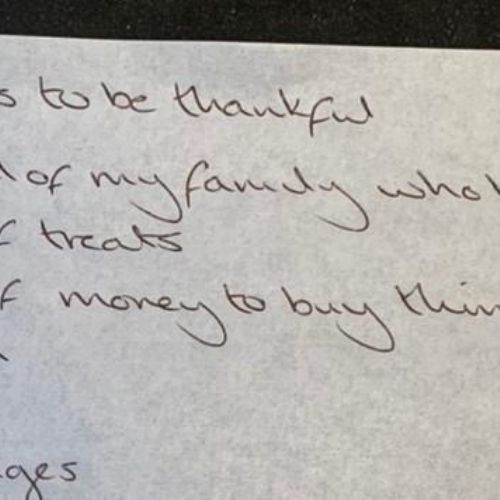 s to be thankful
of my family who
f treats
f money to buy thin
ges